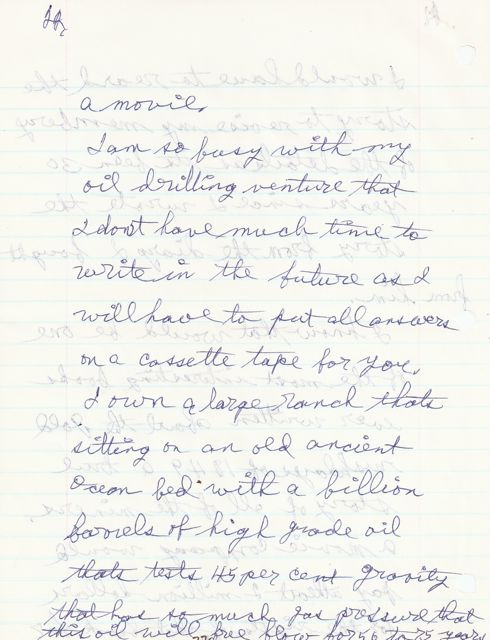 a movie.
I am so busy with my
oil drilling venture that
I dont have much time to
write in the future as I
will have to put all answers
on a cassette tape for you.
I own a large ranch thats
sitting on an old ancient
Ocean bed with a billion
barrels of high grade oil
thats tests 45 per cent gravity
that has so much gas pressure that
this oil will free flow for 50 to 75 years